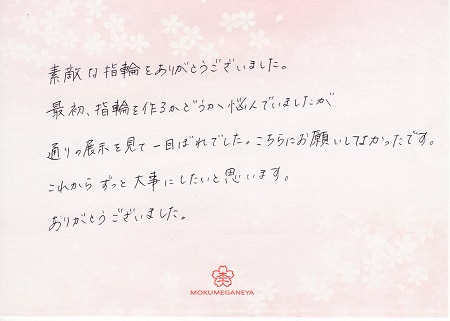 素敵な指輪をありがとうございました。
最初、指輪を作るかどうか、悩んでいましたが
通りの展示を見て一目ぼれでした。こちらにお願いしてよかったです。
これからずっと大事にしたいと思います。
ありがとうございました。
MOKUMEGANEYA